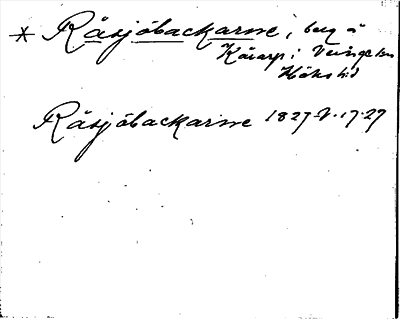 * Råsjöbackarne, berg å
Kärarp i Veinge sn
Höks hd
Råsjöbackarne 1827-V-17-27